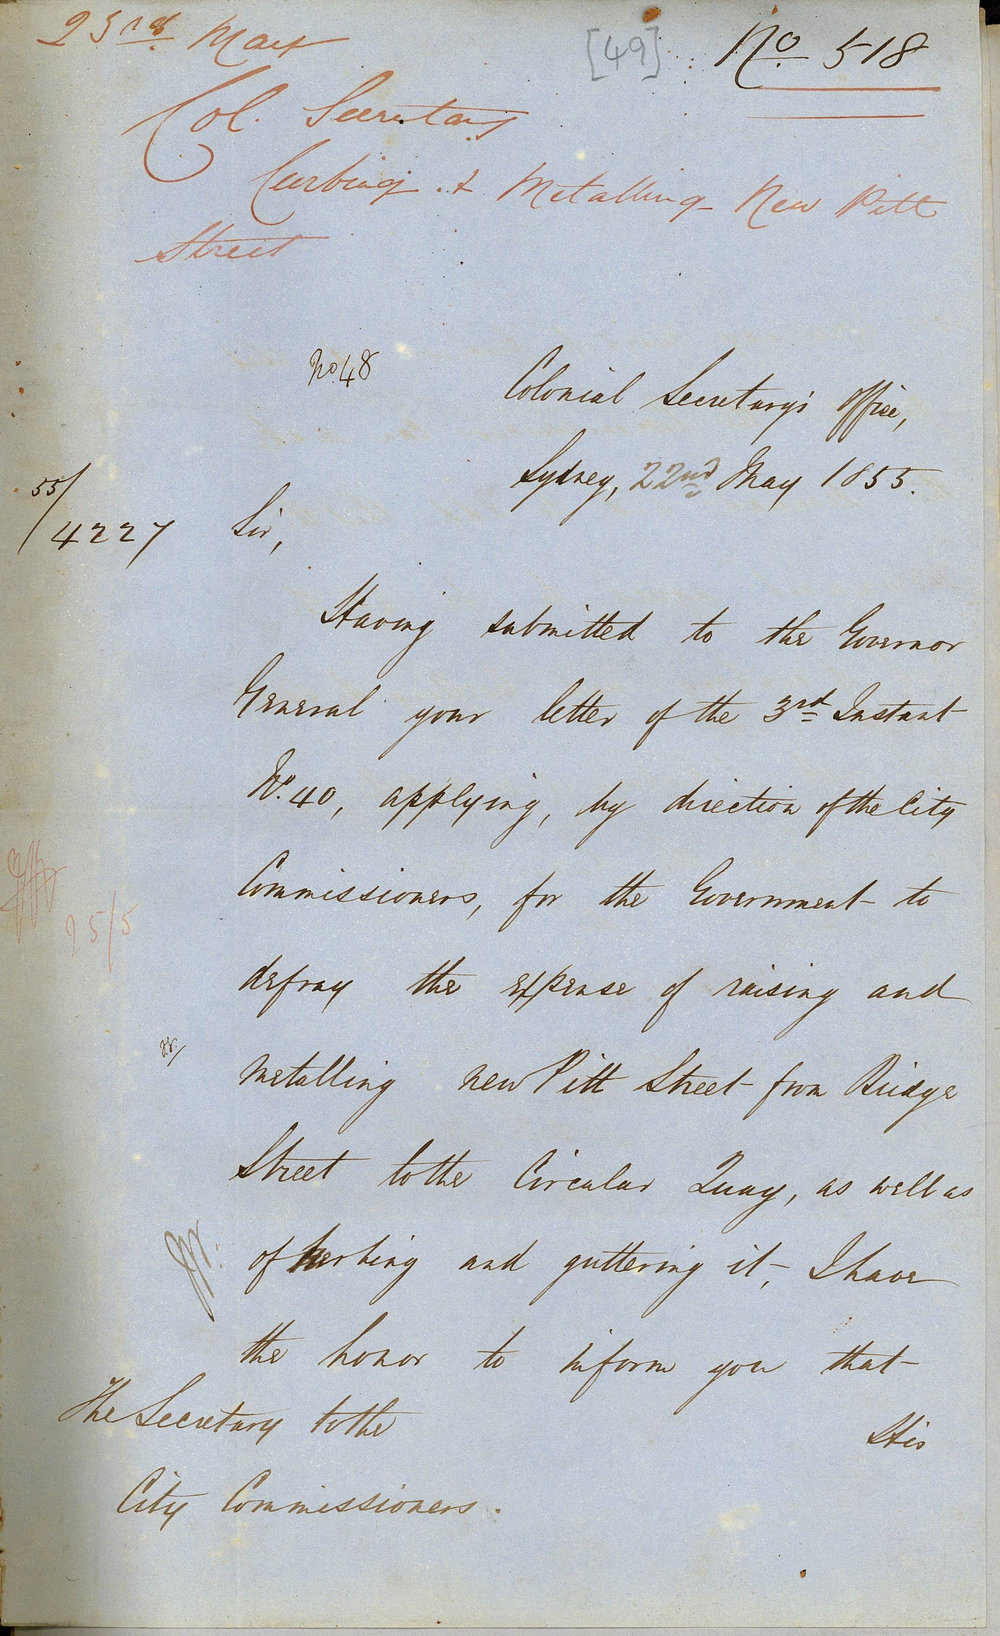 23rd May
[49]
No 518
Col. Secretary
Curbing & Metalling New Pitt
Street
No. 48
Colonial Secretary's Office,
Sydney, 22nd May 1855.
55/
4227
Sir,
Having submitted to the Governor
General your letter of the 3rd Instant
No. 40, applying, by direction of the City
Commissioners, for the Government to
defray the expense of raising and
25/5
metalling new Pitt Street from Bridge
Street to the Circular Quay, as well as
of kerbing and guttering it, – I have
the honor to inform you that
His
The Secretary to the
City Commissioners.